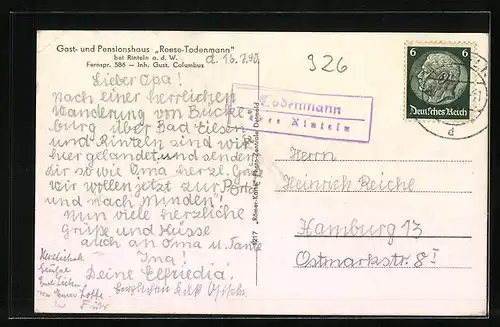 Gast- und Pensionshaus „Reese-Todenmann"
bei Rinteln a. d. W.
Fernspr. 586 — Inh. Gust. Columbus
326
6 6
Deutsches Reich
Todenmann
über Rinteln
Lieber Opa!
Nach einer herrlichen
Wanderung von Bücke-
burg über Bad Eilsen
und Rinteln sind wir
hier gelandet und senden
dir sowie Oma herzl. Grüße
Wir wollen jetzt zur Porta
und nach Minden!
Nun viele herzliche
Grüße und Küsse
auch an Oma u. Tante
Ina!
Deine Elfriedia!
Herrn
Heinrich Reiche
Hamburg 13
Ostmarkstr. 8 I
Lotte